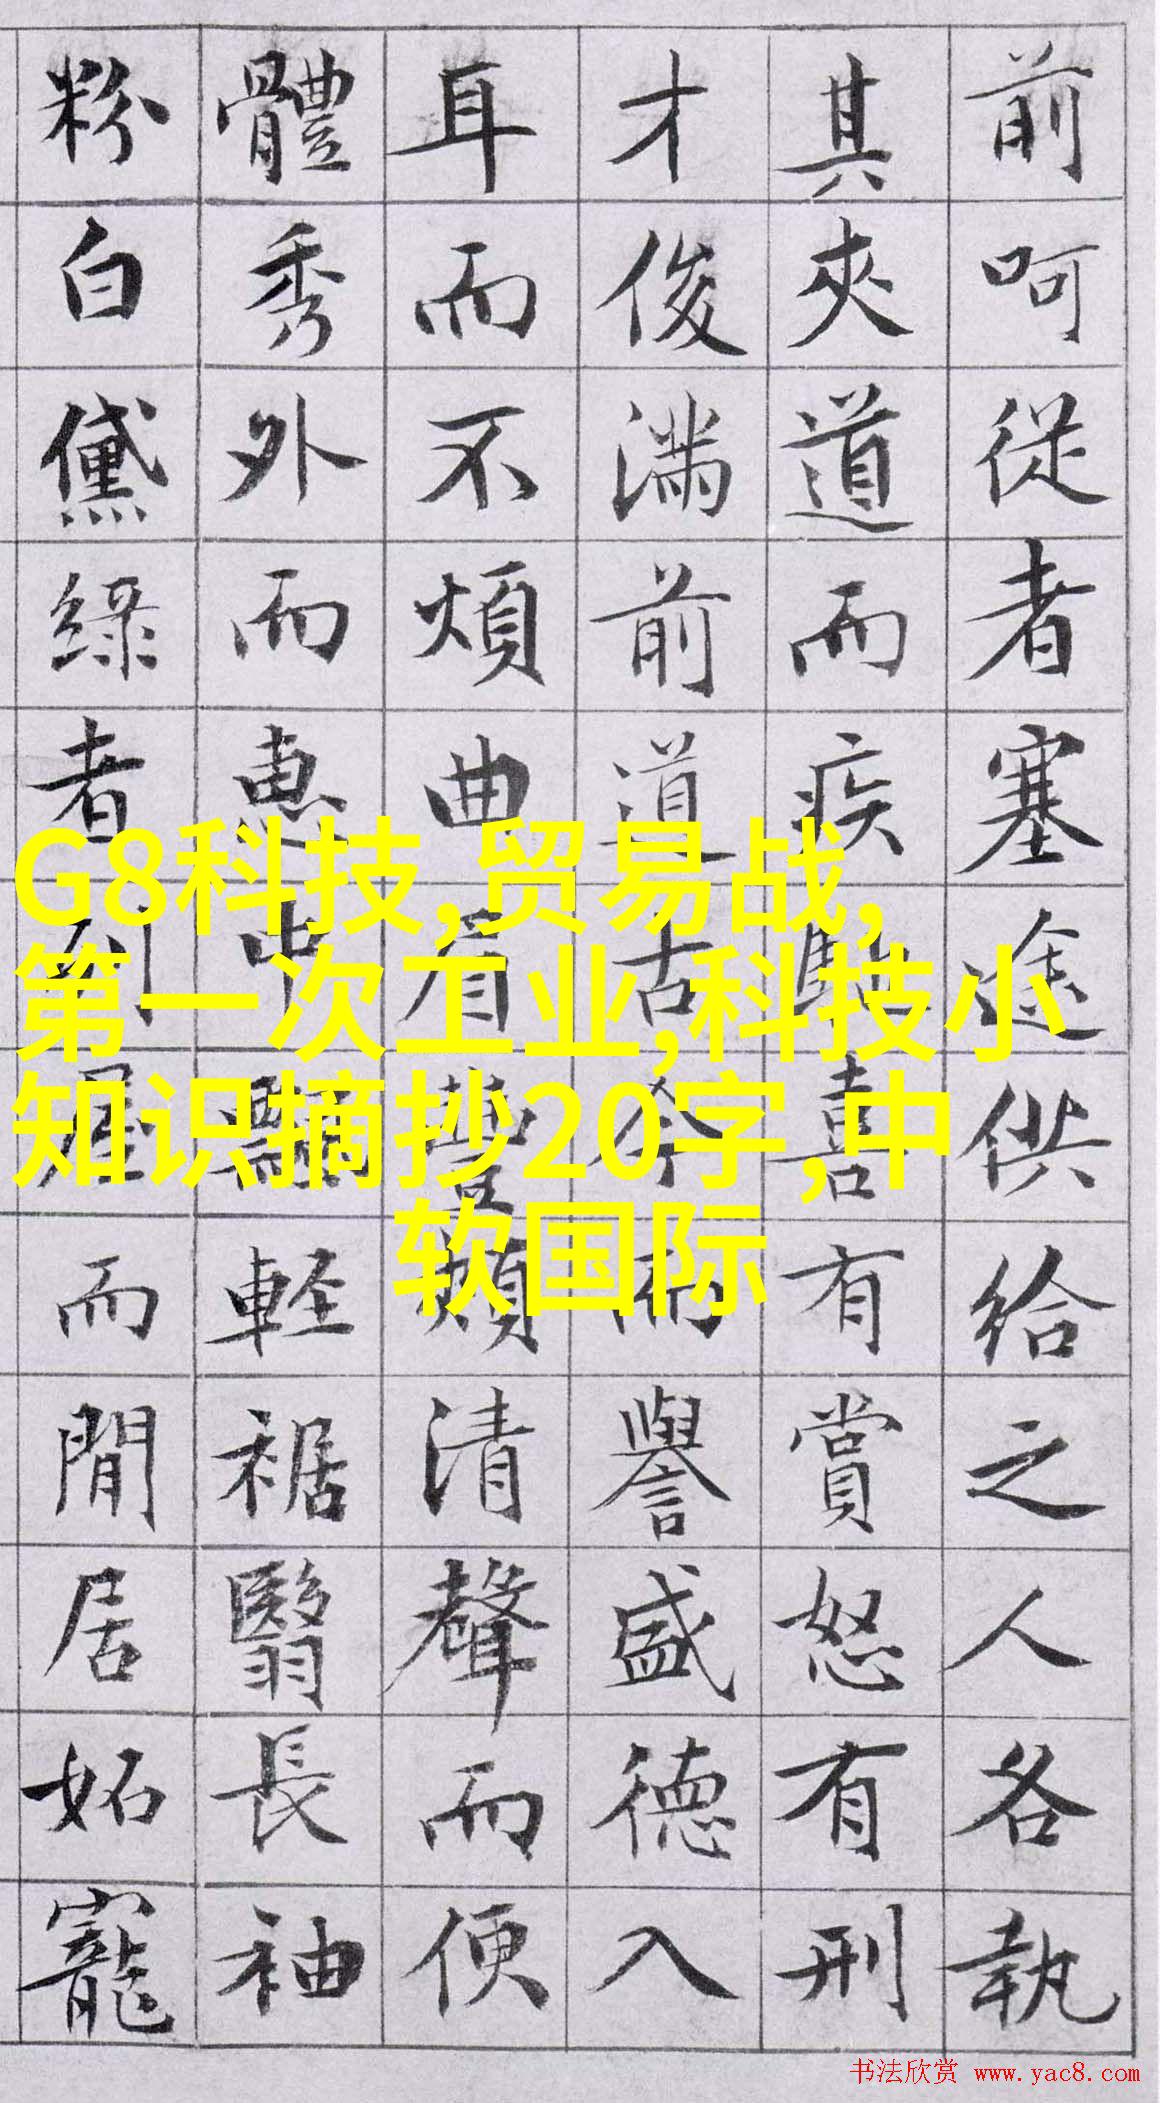 前呵從者塞途供給之人各執
其夾道而疾馳喜有賞怒有刑
才俊滿前道古今而譽盛德入
耳而不煩曲眉豐頰清聲而便
體秀外而惠中飄輕裾翳長袖
粉白黛綠者列屋而閒居妬寵
G8科技,贸易战,
第一次工业,科技小
知识摘抄20字,中
软国际
书法欣赏 www.yac8.com